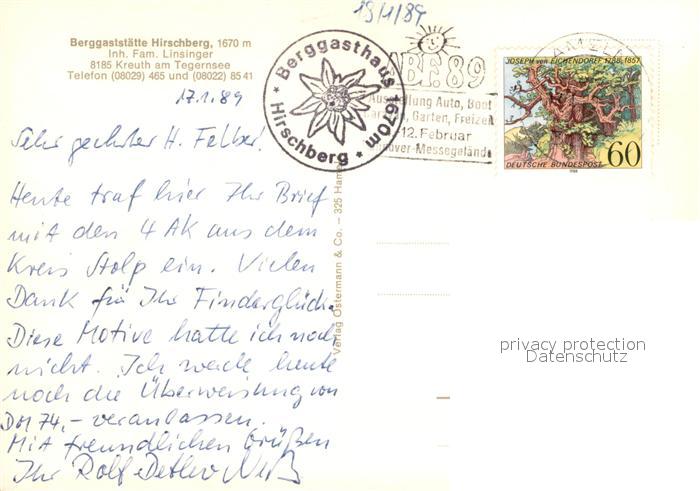 19/1/89
Berggaststätte Hirschberg, 1670 m
Inh. Fam. Linsinger
8185 Kreuth am Tegernsee
Telefon (08029) 465 und (08022) 85 41
17.1.89
Sehr geehrter H. Felber!
Heute traf hier Ihr Brief
mit den 4 AK aus dem
Kreis Stolp ein. Vielen
Dank für Ihr Finderglück.
Diese Motive hatte ich noch
nicht. Ich werde heute
noch die Überweisung von
DM 74,- veranlassen.
Mit freundlichen Grüßen
Ihr Rolf-Detlev
Berggasthaus 1670m
* Hirschberg *
ABF.89
Ausstellung Auto, Boot
Garten, Freizeit
-12. Februar
Hannover-Messegelände
JOSEPH von EICHENDORFF 1788-1857
DEUTSCHE BUNDESPOST 60
1988
Verlag Ostermann & Co. – 325 Hameln
privacy protection
Datenschutz